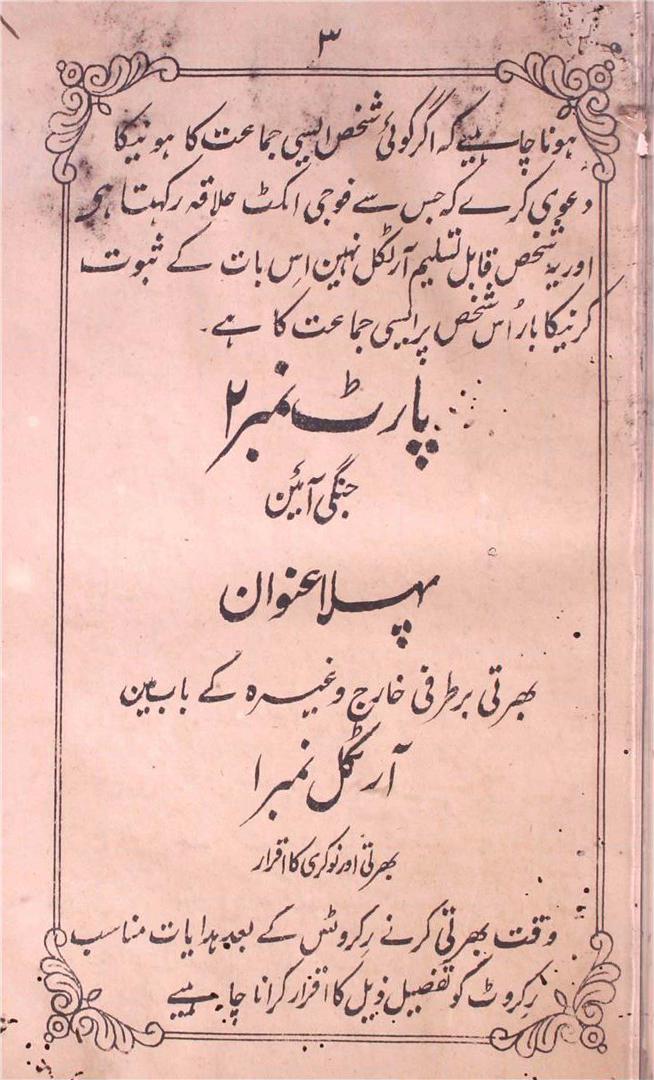 ۳
ہونا چاہیے کہ اگر کوئی شخص ایسی جماعت کا ہونیکا
دعوی کرے کہ جس سے فوجی اکٹ علاقہ رکہتا ہو
اور یہ شخص قابل تسلیم آرٹکل نہین اِس بات کے ثبوت
کرنیکا بار اُس شخص پر ایسی جماعت کا ہے۔
پارٹ نمبر ۲
جنگی آئین
پہلا عنوان
بھرتی برطرفی خارج وغیرہ کے باب مین
آرٹکل نمبر ۱
بھرتی اور نوکری کا اقرار
وقت بھرتی کرنے رِکروٹس کے بعد ہدایات مناسب
رِکروٹ کو تفصیل ذیل کا اقرار کرانا چاہیے